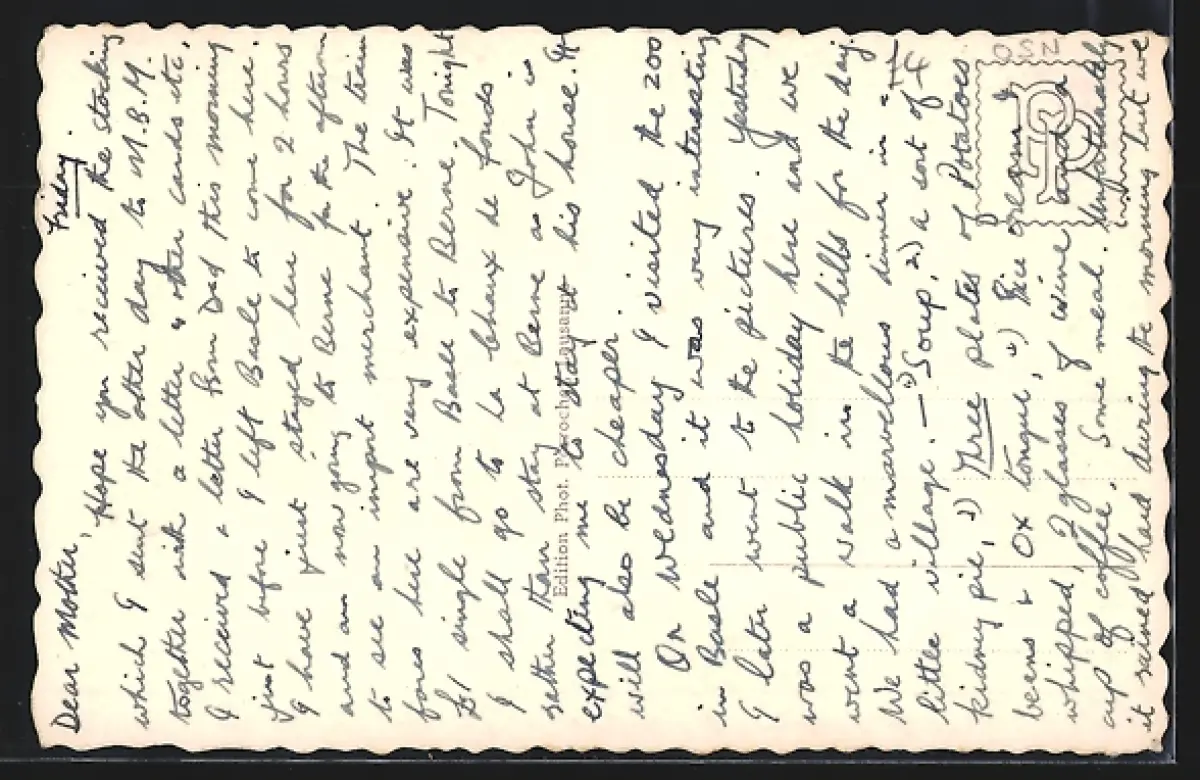 Friday.
Dear Mother,
Hope you received the stocking
which I sent the other day to M.B.M.
together with a letter & other cards etc.
I received a letter from Dad this morning
just before I left Basle to come here.
I have just stayed here for 2 hours
and am now going to Berne for the aftern
to see an import merchant. The train
fares here are very expensive. It was
£1 single from Basle to Berne. Tonight
I shall go to La Chaux de fonds
rather than stay at Berne as John is
expecting me to stay at his house. It
will also be cheaper.
On Wednesday I visited the zoo
in Basle and it was very interesting
I later went to the pictures. Yesterday
was a public holiday here and we
went a walk in the hills for the day.
We had a marvellous dinner in a
little village. — 1) Soup, 2) a sort of
kidney pie, 3) Three plates of Potatoes
beans & Ox tongue, 4) Rice cream &
whipped, 2 glasses of wine and a
cup of coffee. Some meal. Unfortunately
it rained hard during the morning but we
Edition Phot. Perrochet, Lausanne
OSZ